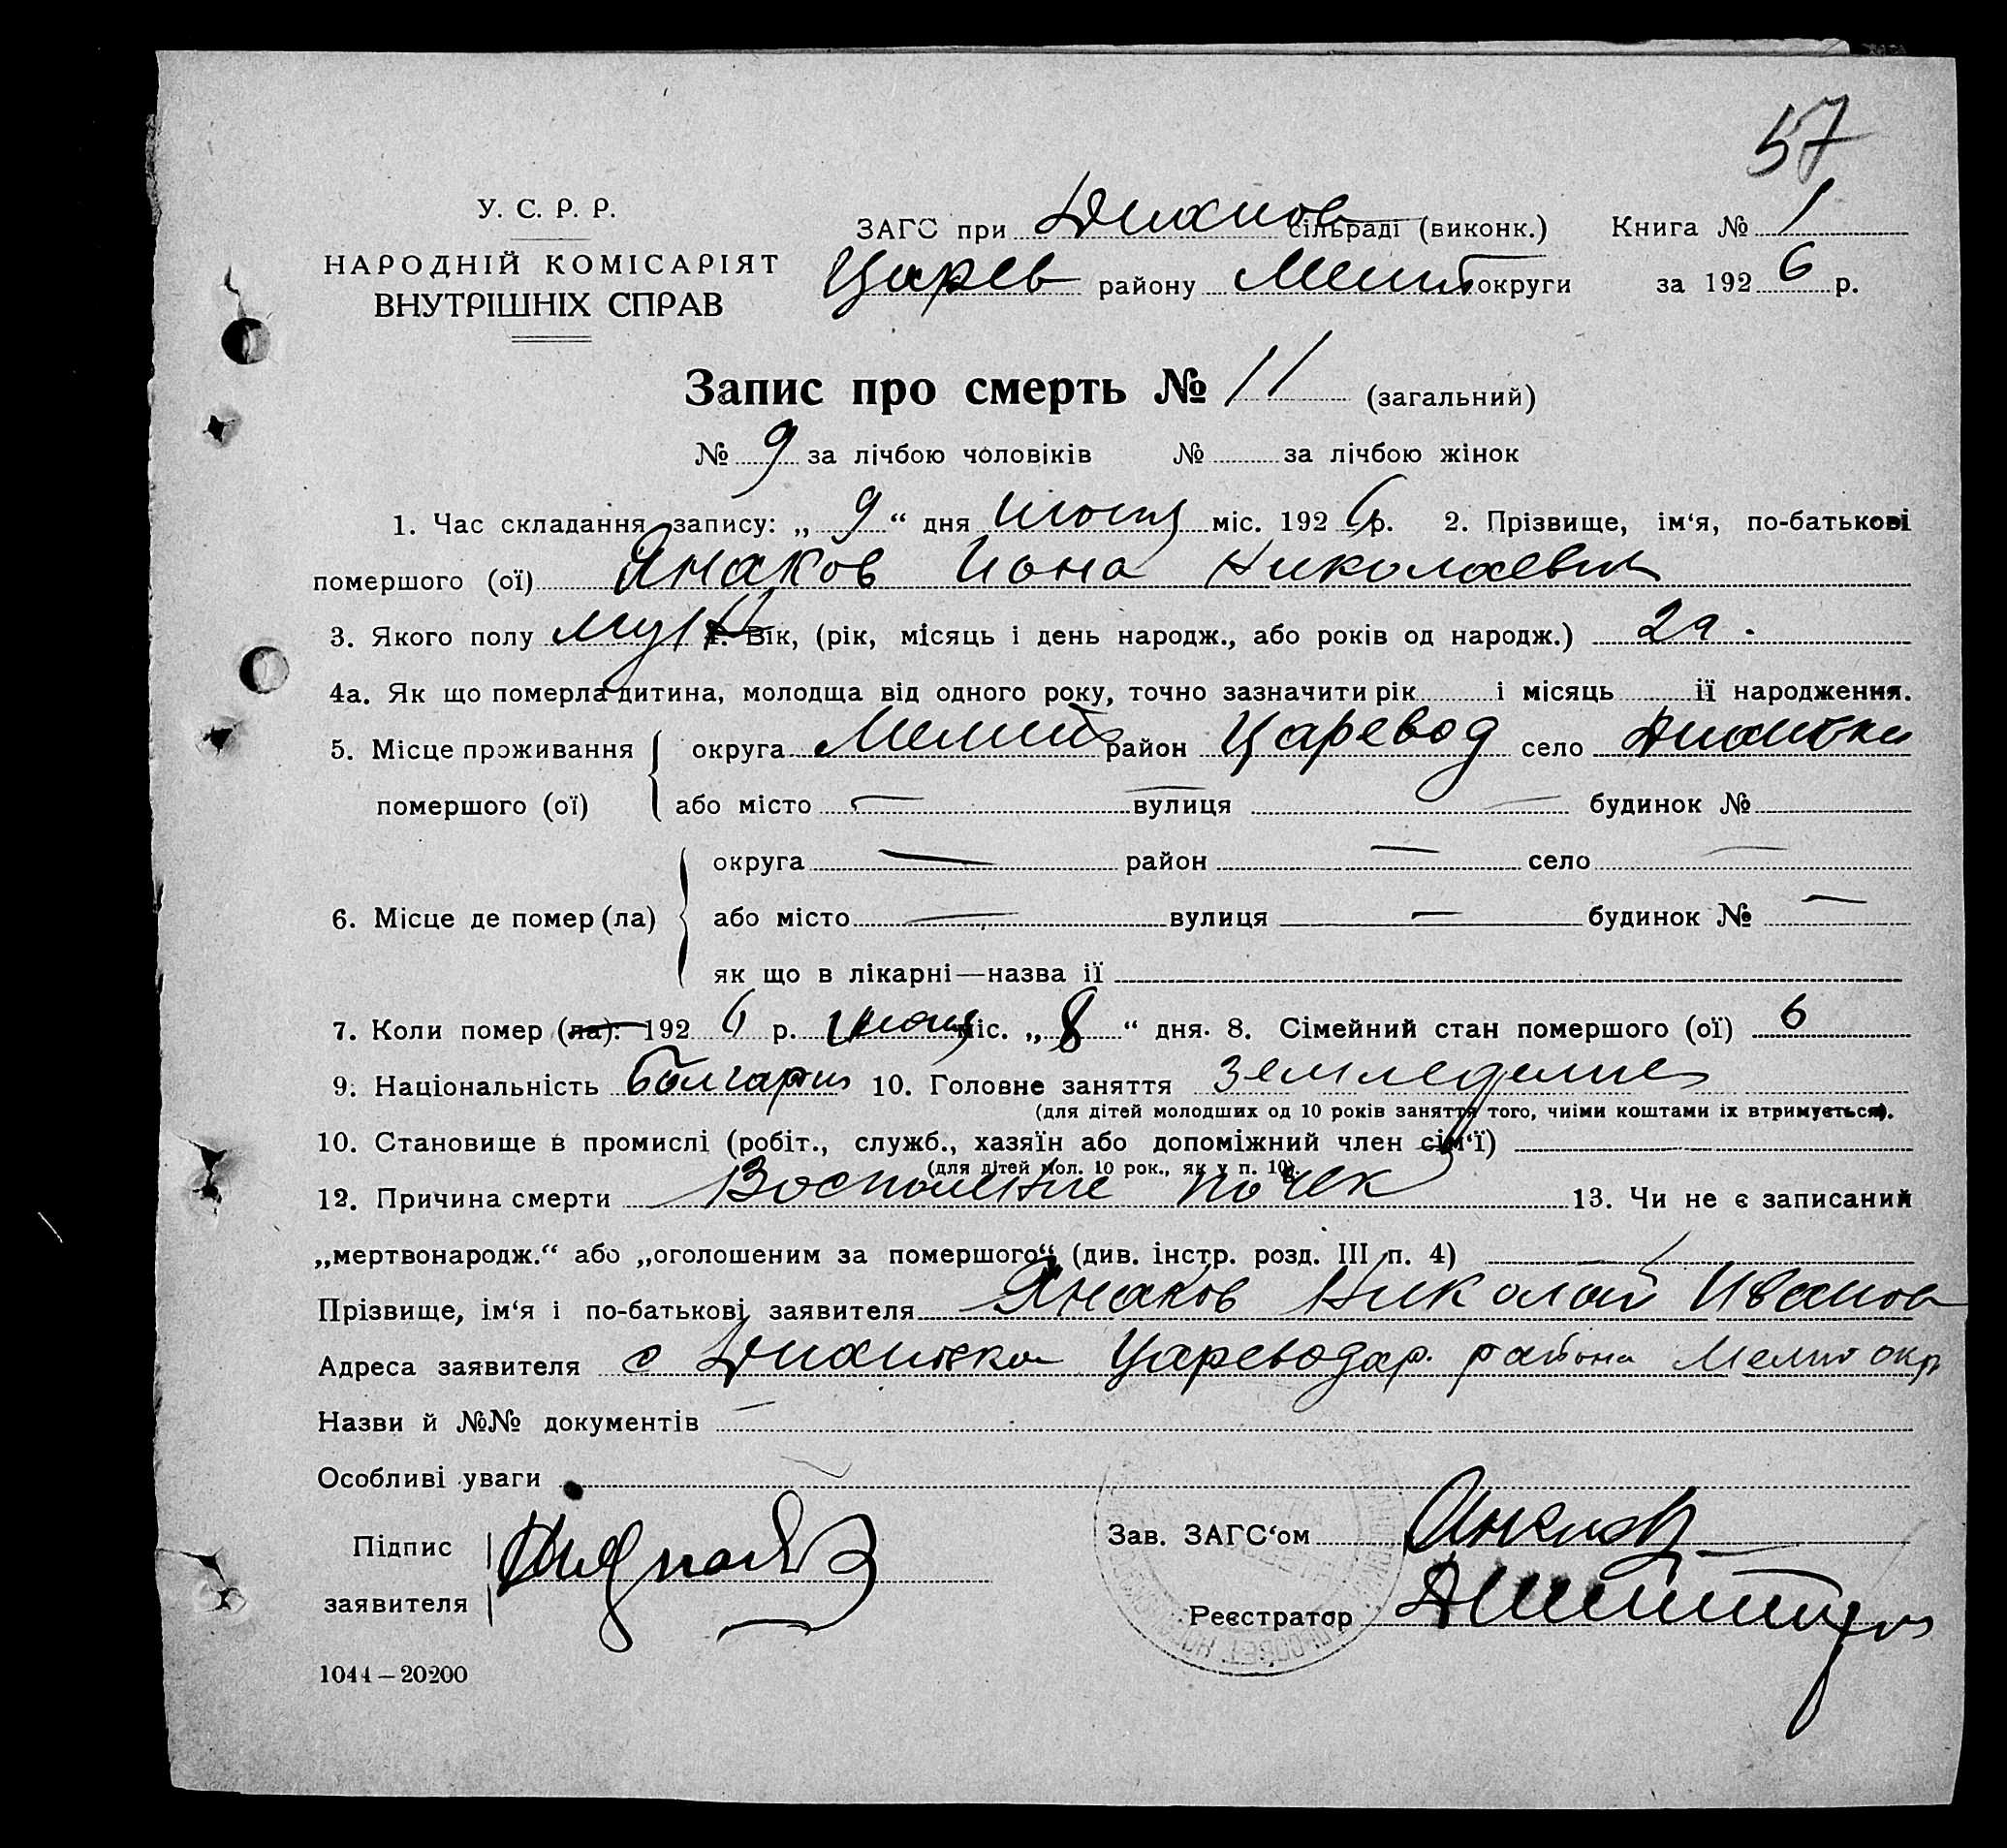 57
У. С. Р. Р.
НАРОДНІЙ КОМІСАРІЯТ
ВНУТРІШНІХ СПРАВ
ЗАГС при Дианов сільраді (виконк.) Книга № 1
Царев району Мелит округи за 1926 р.
Запис про смерть № 11 (загальний)
№ 9 за лічбою чоловіків № за лічбою жінок
1. Час складання запису: „ 9 “ дня міс. 1926 р. 2. Прізвище, ім‘я, по-батькові
помершого (ої) Янаков Иона Николаевич
3. Якого полу муж 4. Вік, (рік, місяць і день народж., або років од народж.)
4а. Як що померла дитина, молодща від одного року, точно зазначити рік і місяць її народження.
5. Місце проживання округа Мелит район Царевод село Диановки
помершого (ої) або місто — вулиця — будинок №
округа — район — село —
6. Місце де помер (ла) або місто — вулиця — будинок № —
як що в лікарні—назва ії
7. Коли помер (ла): 1926 р. міс. „ 8 “ дня. 8. Сімейний стан помершого (ої)
9. Національність болгарин 10. Головне заняття земледелие
(для дітей молодших од 10 років заняття того, чиїми коштами іх втримується).
10. Становище в промислі (робіт., служб., хазяїн або допоміжний член сім‘ї)
(для дітей мол. 10 рок., як у п. 10).
12. Причина смерти Воспаление почек 13. Чи не є записаний
„мертвонародж.“ або „оголошеним за помершого“ (див. інстр. розд. III п. 4)
Прізвище, ім‘я і по-батькові заявителя Янаков Николай Иванов
Адреса заявителя с Диановка Цареводар. района Мелит окр
Назви й №№ документів —
Особливі уваги
Підпис
заявителя
Зав. ЗАГС‘ом
Реєстратор
1044—20200